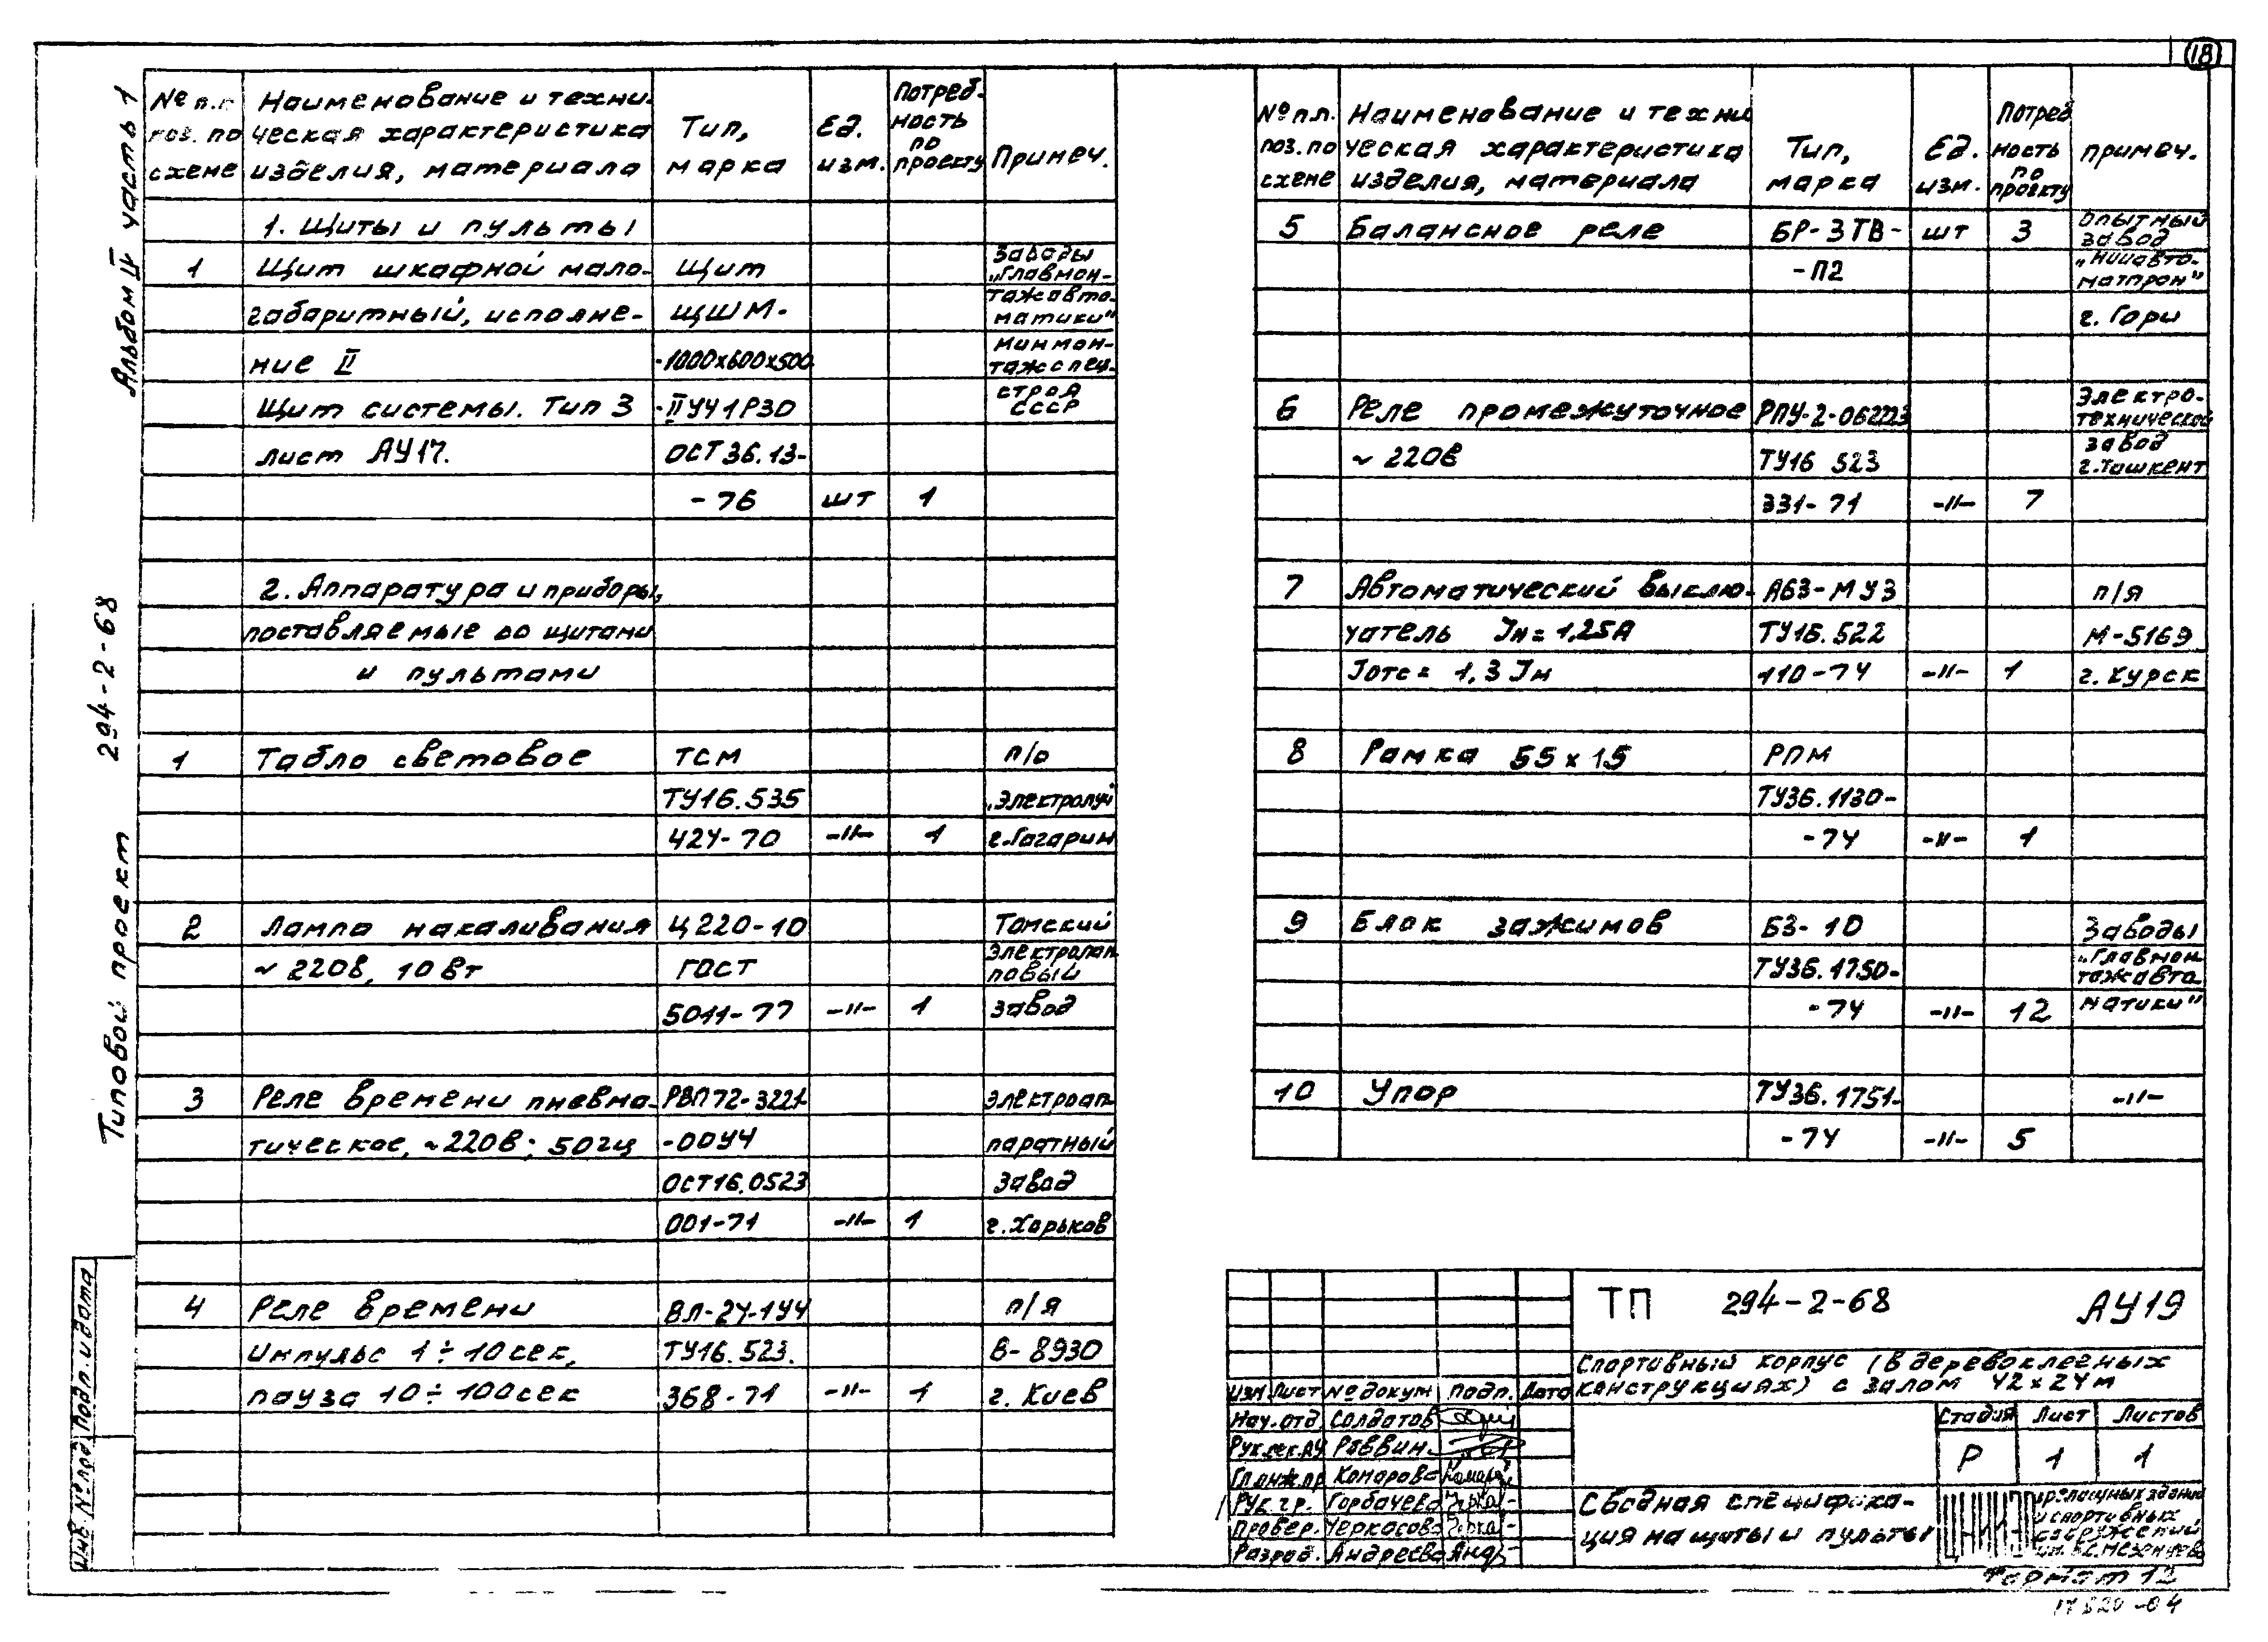 18
Альбом II часть 1
Типовой проект 294-2-68
№ п.п. поз. по схене
Наименование и техни-
ческая характеристика
изделия, материала
Тип, марка
Ед. изм.
Потреб-
ность по проекту
Примеч.
1. Щиты и пульты
1 Щит шкафной мало- Щит Заводы „Главмон-
габаритный, исполне- ЩШМ- тажавто-
матики"
ние II -1000х600х500 Минмон-
тажспец-
Щит системы. Тип 3 -IIУЧ1Р30 строя СССР
лист АУ17. ОСТ 36.13-
-76 шт 1
2. Аппаратура и приборы,
поставляемые со щитами
и пультами
1 Табло световое ТСМ п/о
ТУ16.535 „Электролуч"
424-70 -"- 1 г.Гагарин
2 Лампа накаливания Ц220-10 Томский
~220В, 10Вт ГОСТ Электролам-
повый
5011-77 -"- 1 завод
3 Реле времени пневма- РВП72-3221- Электроап-
тическое, ~220В; 50гц -00У4 паратный
ОСТ16.0523 завод
001-71 -"- 1 г.Харьков
4 Реле времени ВЛ-24-1У4 п/я
импульс 1÷10сек, ТУ16.523. В-8930
пауза 10÷100сек 368-71 -"- 1 г. Киев
№ п.п. поз. по схене
Наименование и техни
ческая характеристика
изделия, материала
Тип, марка
Ед. изм.
Потреб
ность по проекту
примеч.
5 Балансное реле БР-3ТВ- шт 3 Опытный завод
-П2 „Нииавто-
матпром"
г. Гори
6 Реле промежуточное РПУ-2-062223 Электро-
технической
~220В ТУ16 523 завод г.Ташкент
331-71 -"- 7
7 Автоматический выклю- А63-МУ3 п/я
чатель Jн=1,25А ТУ16.522 М-5169
Jотс= 1,3Jн 110-74 -"- 1 г. Курск
8 Рамка 55х15 РПМ
ТУ36.1130-
-74 -"- 1
9 Блок зажимов БЗ-10 Заводы
ТУ36.1750- „Главмон
тажавто
-74 -"- 12 матики"
10 Упор ТУ36.1751- -"-
-74 -"- 5
ТП 294-2-68 АУ19
Спортивный корпус (в деревоклееных
конструкциях) с залом 42х24м
Изм Лист № докум Подп. Дата
Нач.отд. Солдатов
Рук.сек.АУ Раввин
Гл.инж.пр Комарова
Рук.гр. Горбачева
Провер. Черкасова
Разраб. Андреева
Стадия Лист Листов
Р 1 1
Сводная специфика-
ция на щиты и пульты
зрелищных зданий
и спортивных
сооружений
им. Б.С. Мезенцева
Формат 12
Инв. № под Подп. и дата